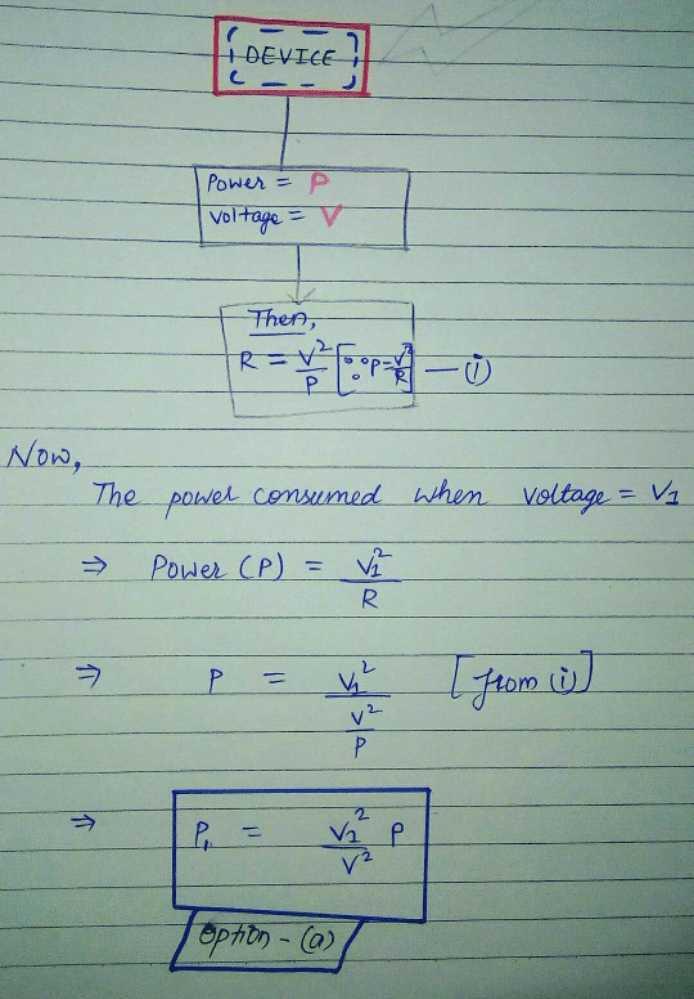 DEVICE
Power = P
Voltage = V
Then,
R = V²/P [∵ P = V²/R] — (i)
Now,
The power consumed when voltage = V₁
⇒ Power (P) = V₁²/R
⇒ P = V₁²/(V²/P) [from (i)]
⇒ P₁ = V₁²/V² P
Option - (a)